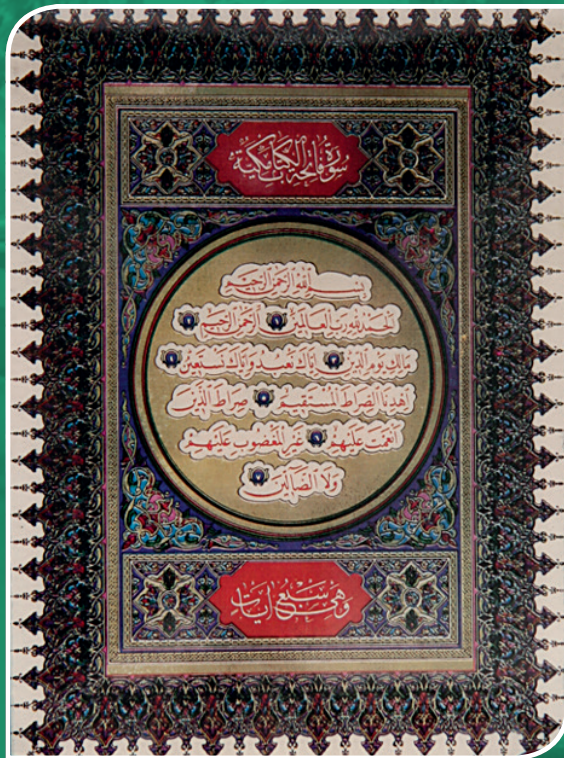 سُورَةُ فَاتِحَةِ الْكِتَابِ مَكِّيَّة
بِسْمِ اللَّهِ الرَّحْمَنِ الرَّحِيمِ
الْحَمْدُ لِلَّهِ رَبِّ الْعَالَمِينَ الرَّحْمَنِ الرَّحِيمِ
مَالِكِ يَوْمِ الدِّينِ إِيَّاكَ نَعْبُدُ وَإِيَّاكَ نَسْتَعِينُ
اهْدِنَا الصِّرَاطَ الْمُسْتَقِيمَ صِرَاطَ الَّذِينَ
أَنْعَمْتَ عَلَيْهِمْ غَيْرِ الْمَغْضُوبِ عَلَيْهِمْ
وَلَا الضَّالِّينَ
وَهِيَ سَبْعُ آيَاتٍ